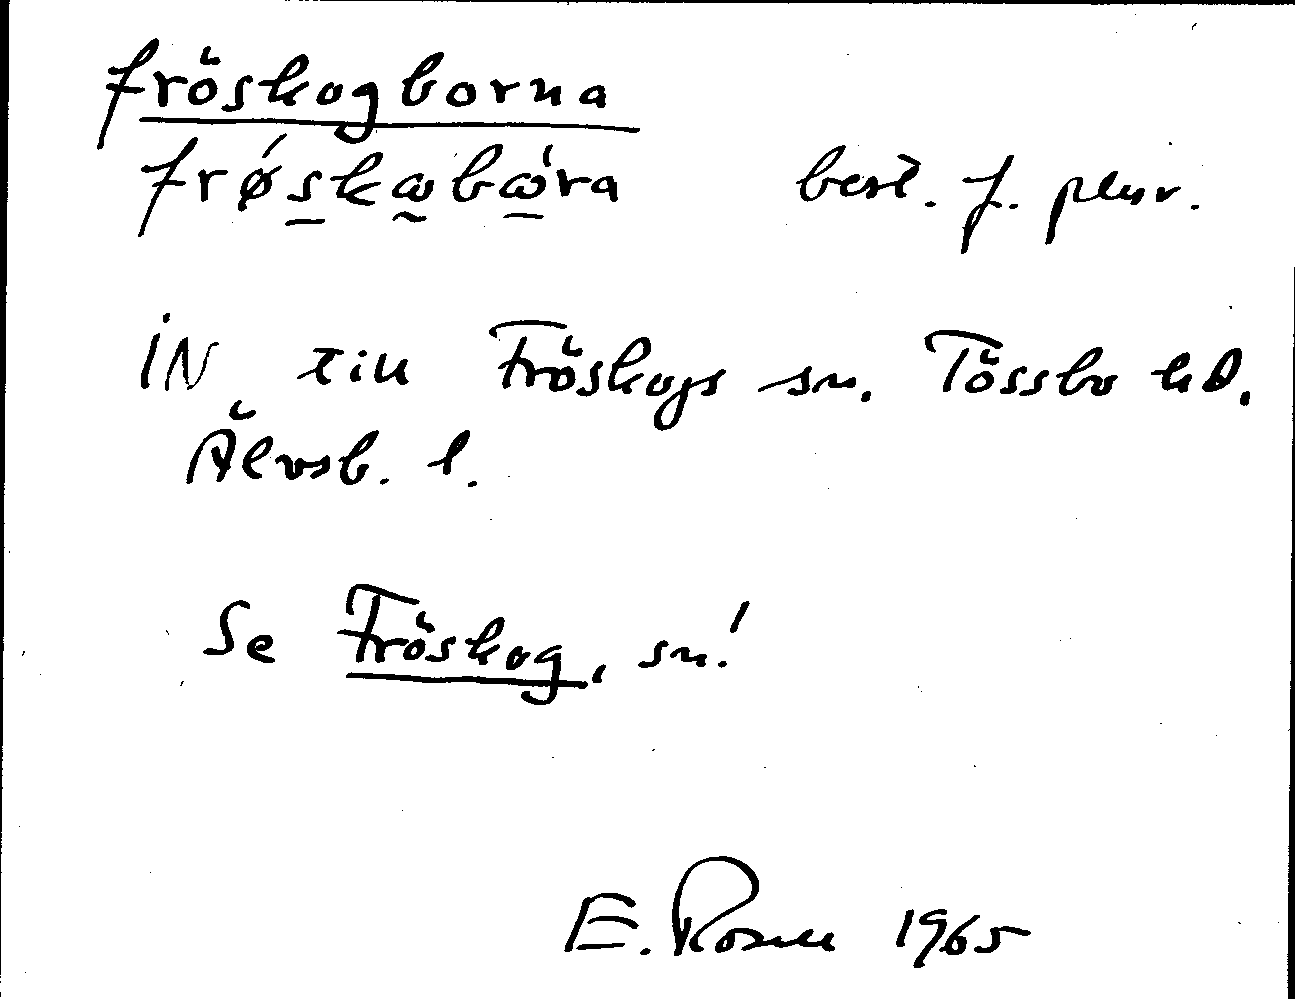 fröskogborna
frǿskωbώra best. f. plur.
IN till Fröskogs sn. Tössbo hd.
Älvsb. l.
Se Fröskog, sn.!
E. Rosell 1965